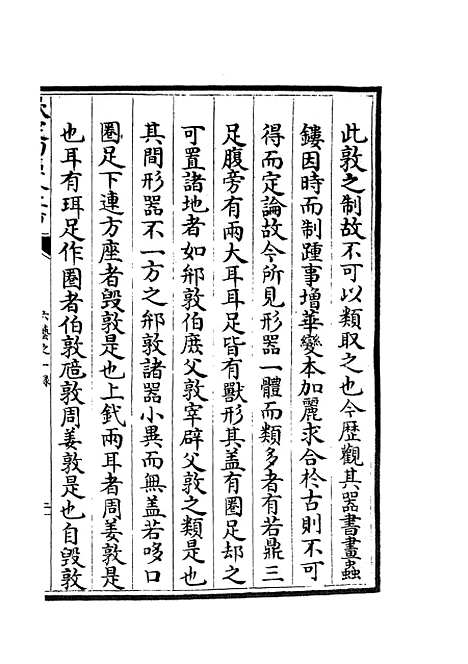 此敦之制故不可以類取之也今歴觀其器書畫蟲
鏤因時而制踵事增華變本加麗求合於古則不可
得而定論故今所見形器一體而類多者有若鼎三
足腹旁有兩大耳耳足皆有獸形其盖有圏足却之
可置諸地者如䢵敦伯庶父敦宰辟父敦之類是也
其間形器不一方之䢵敦諸器小異而無盖若哆口
圏足下連方座者毁敦是也上鈂兩耳者周姜敦是
也耳有珥足作圏者伯敦䧹敦周姜敦是也自毁敦
六藝之一録